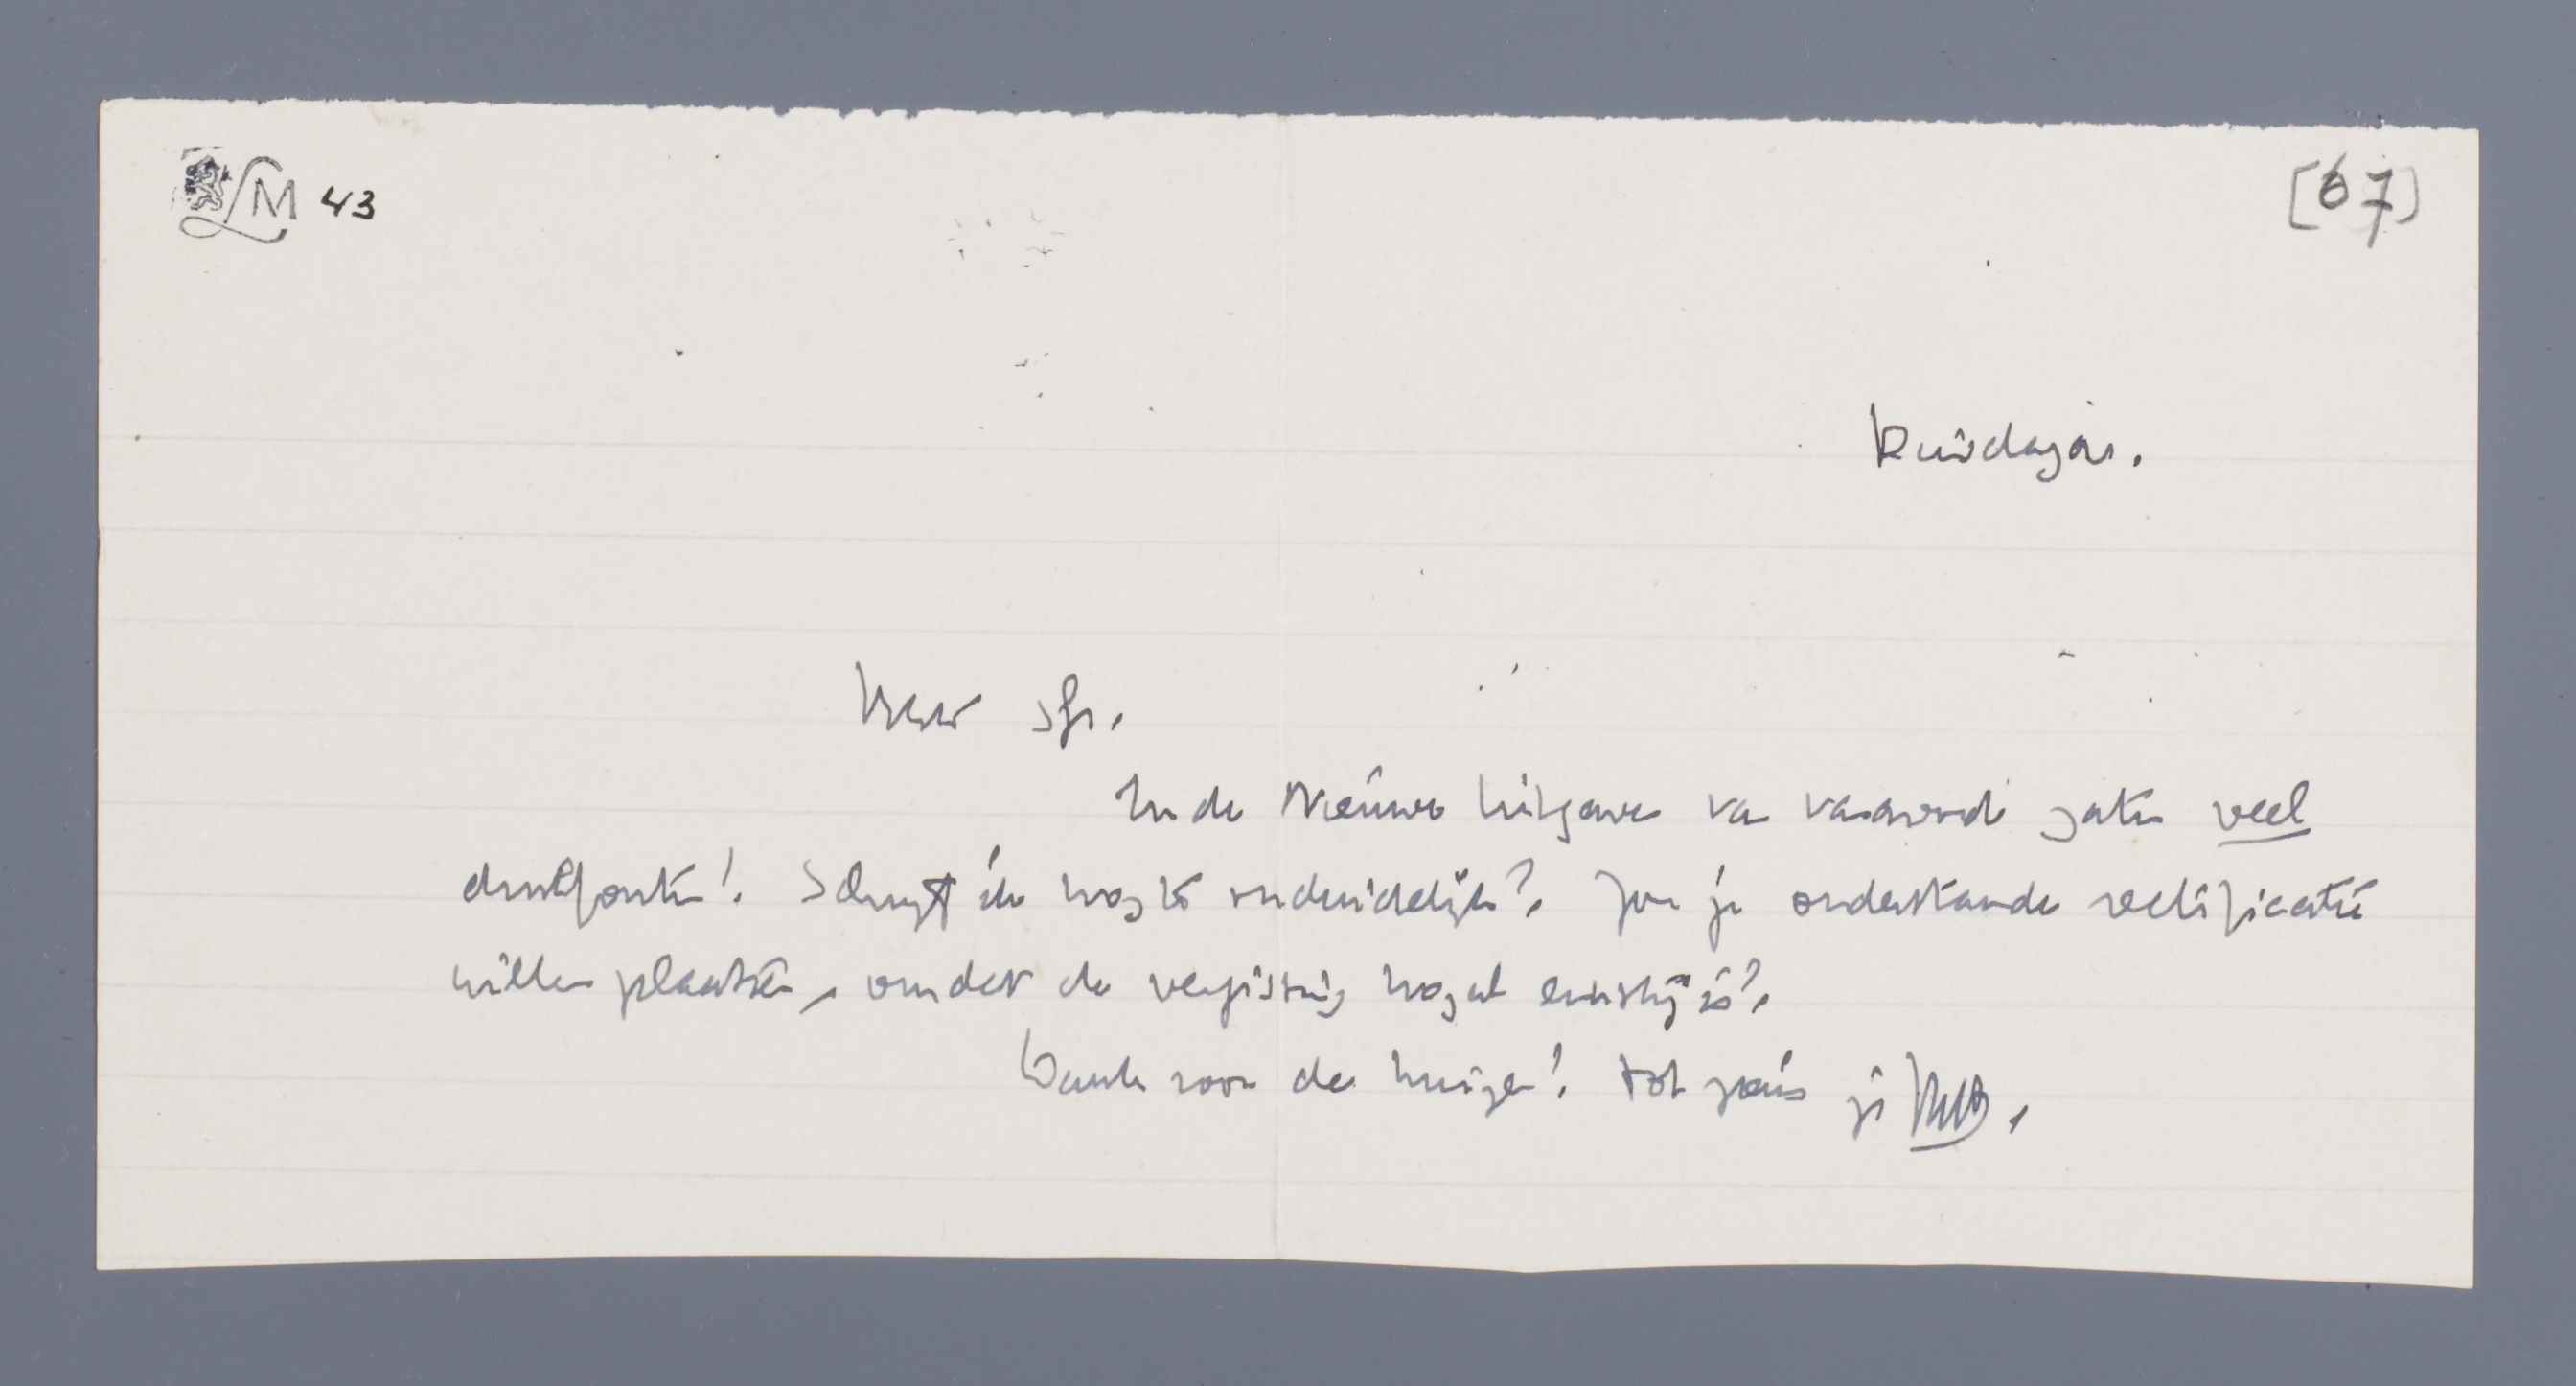 LM 43
[67]
Dinsdag
In de Nieuwe Uitgave van vanavond zaten veel
drukfouten! Schrijf ik nog te onduidelijk? Zou je onderstaande rectificatie
willen plaatsen, omdat de vergissing nogal ernstig is?
Dank voor de huize! tot ziens je